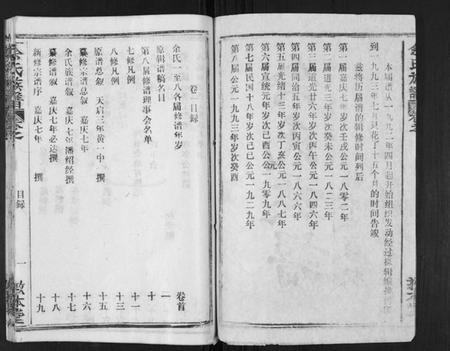 本届谱从一九九二年四月起开始组织发动经过
到一九九三年
月花了十五个月的时间告竣
兹将历届谱的辑修时间列后
第一届嘉庆七年岁次壬戌公元一八〇二年
第二届道光三年岁次癸未公元一八二三年
第三届道光廿六年岁次丙午公元一八四六年
第四届同治五年岁次丙寅公元一八六六年
第五届光绪十三年岁次丁亥公元一八八七年
第六届宣统元年岁次己酉公元一九〇九年
第七届民国十八年岁次己巳公元一九二九年
第八届公元一九九三年岁次癸酉
卷一目录
余氏一至八各届修谱年岁 卷首
原辑谱稿名目 一
第八届修谱理事会名单
七修凡例 十一
八修凡例 十三
原谱总叙 天启三年黄一中 撰 十五
嘉庆宗谱总叙 嘉庆七年 撰 十六
余氏族谱叙 嘉庆七年潘绍经撰 十七
嘉庆总叙 嘉庆七年必达撰 十八
新修宗谱序 嘉庆七年 撰 十九
余氏族谱
目录
一
敦本堂